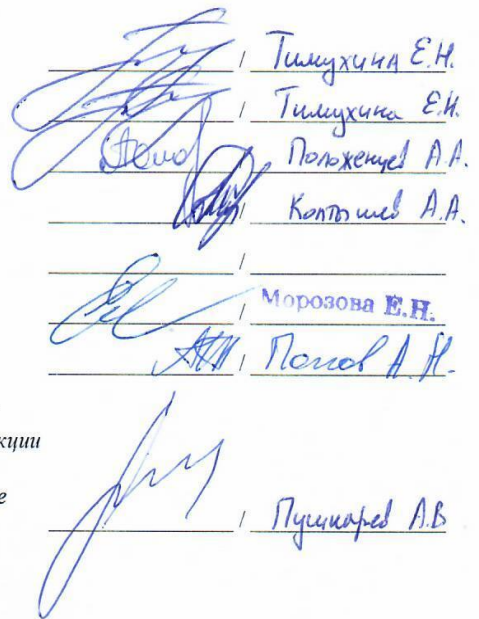 / Тимухина Е.Н.
/ Тимухина Е.Н.
/ Положенцев А.А.
/ Колтышев А.А.
/
/ Морозова Е.Н.
/ Попов А.Н.
кции
е
/ Пушкарев А.В